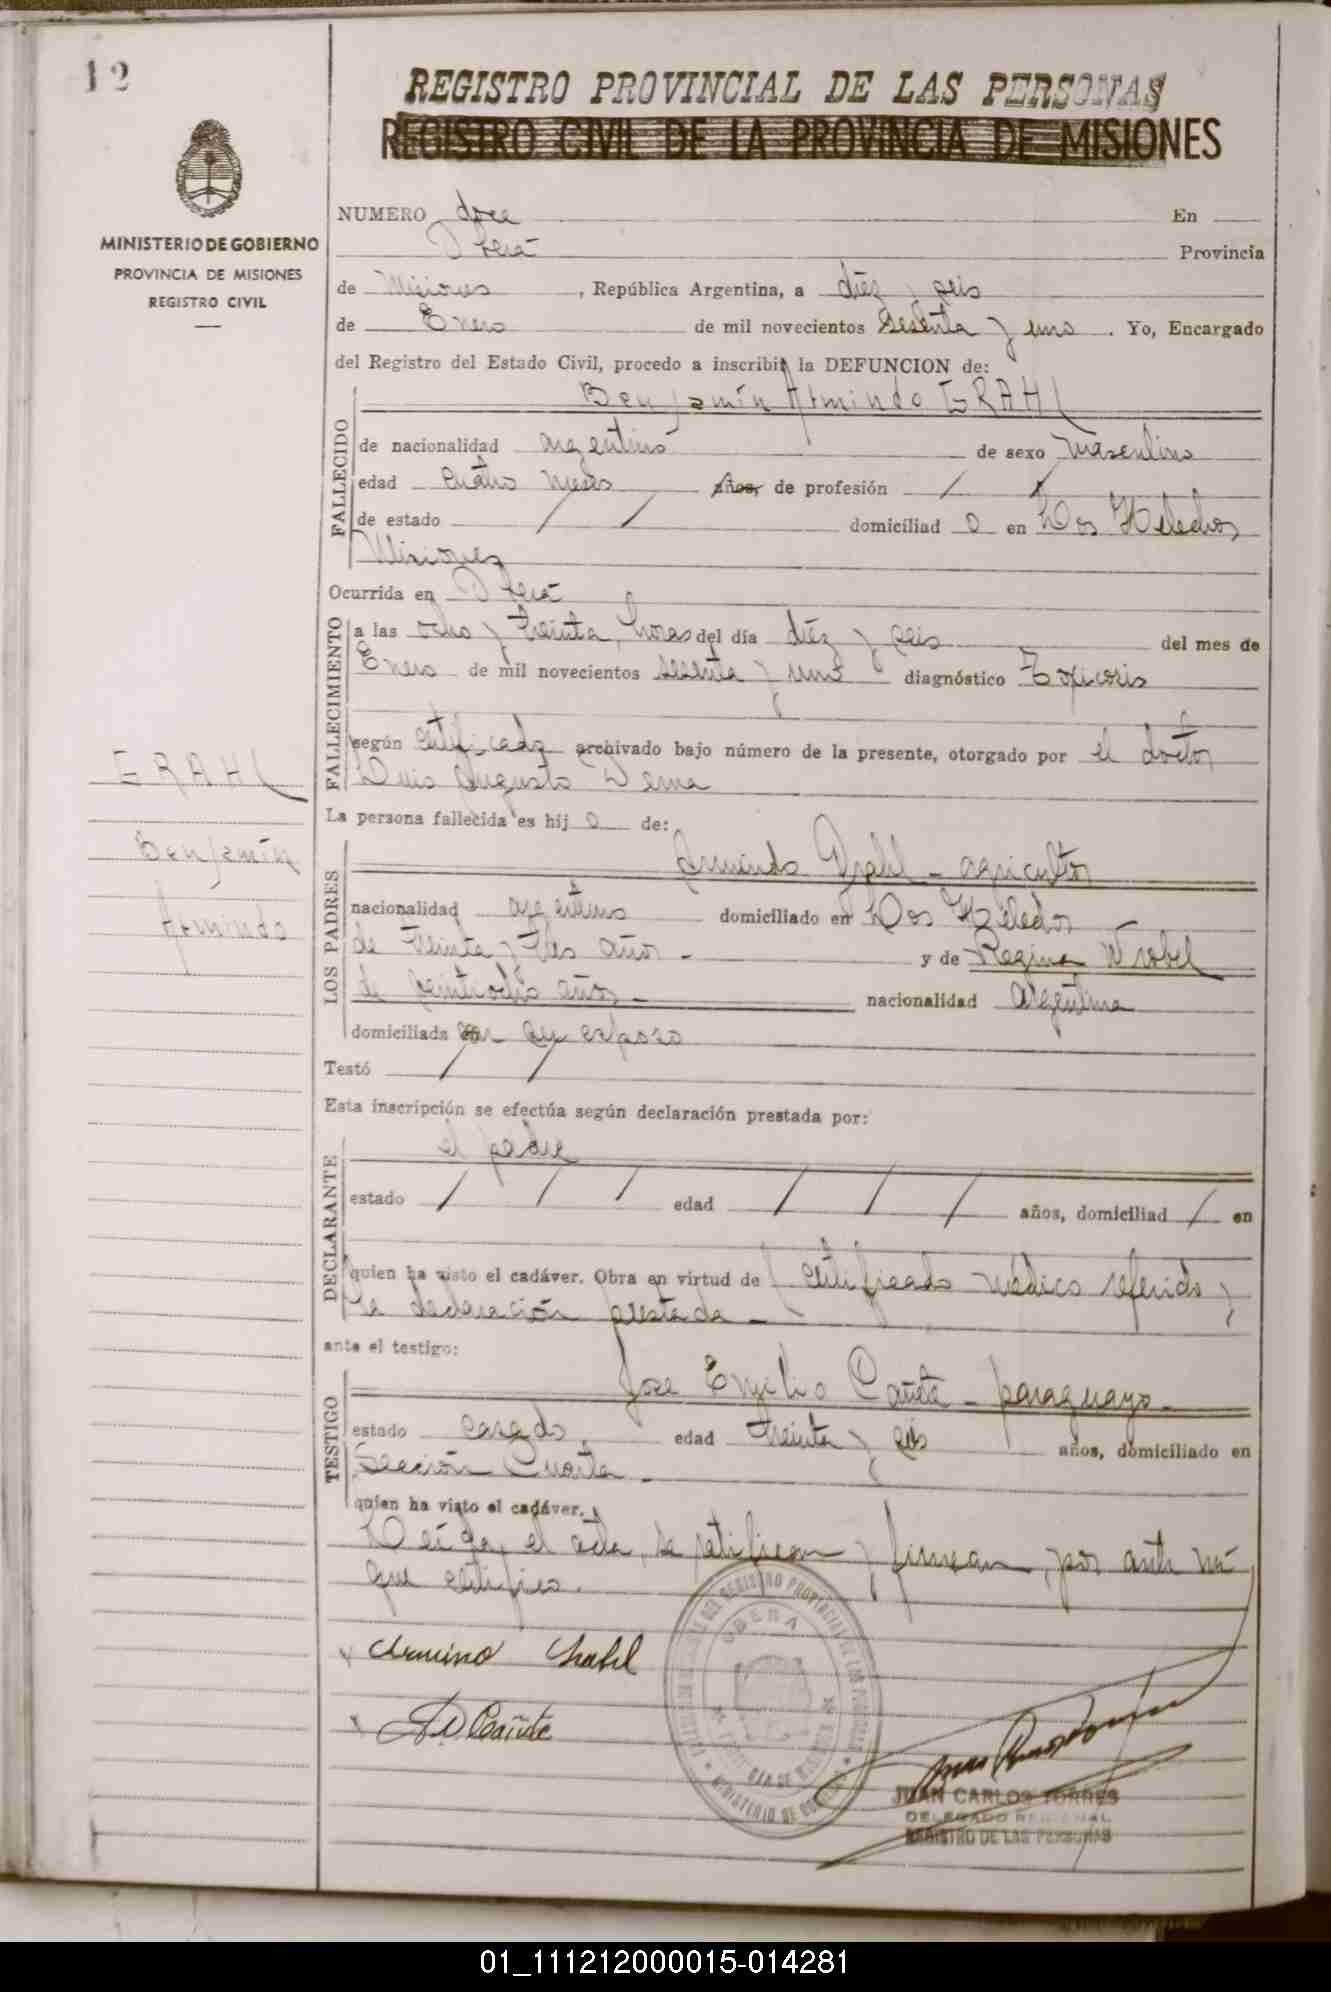 12
REGISTRO PROVINCIAL DE LAS PERSONAS
REGISTRO CIVIL DE LA PROVINCIA DE MISIONES
MINISTERIO DE GOBIERNO
PROVINCIA DE MISIONES
REGISTRO CIVIL
NUMERO doce En
Oberá Provincia
de Misiones, República Argentina, a diéz y seis
de Enero de mil novecientos sesenta y uno. Yo, Encargado
del Registro del Estado Civil, procedo a inscribir la DEFUNCION de:
Benjamín Armindo GRAHL
FALLECIDO
de nacionalidad argentino de sexo masculino
edad cuatro meses años, de profesión / /
de estado / / domiciliad o en Dos Helechos
Misiones
Ocurrida en Oberá
FALLECIMIENTO
a las ocho y treinta horas del día diéz y seis del mes de
Enero de mil novecientos sesenta y uno diagnóstico Toxicosis
según certificado archivado bajo número de la presente, otorgado por el doctor
Luis Augusto
La persona fallecida es hij o de:
GRAHL
Benjamín
Armindo
LOS PADRES
Armindo Grahl - agricultor
nacionalidad argentino domiciliado en Dos Helechos
de treinta y tres años - y de Regina Wrobel
de veintiocho años - nacionalidad argentina
domiciliada con su esposo
Testó / /
Esta inscripción se efectúa según declaración prestada por:
DECLARANTE
el padre
estado / / / edad / / / años, domiciliad / en
quien ha visto el cadáver. Obra en virtud de certificado médico referido y
la declaración prestada -
ante el testigo:
TESTIGO
José Cañete - paraguayo -
estado casado, edad treinta y seis años, domiciliado en
Sección Cuarta -
quien ha visto el cadáver.
Leída el acta, la ratifican y firman, por ante mí
que certifico.
Armindo Grahl
Cañete
OBERA
PROVINCIA DE MISIONES
MINISTERIO DE GOBIERNO
JUAN CARLOS TORRES
DELEGADO REGIONAL
REGISTRO DE LAS PERSONAS
01_111212000015-014281